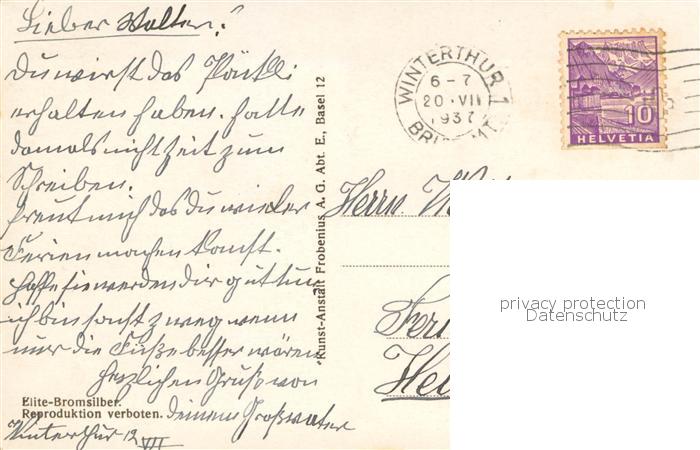 Lieber Walter!
Du wirst das Päckli
erhalten haben. hatte
damals nicht Zeit zum
Schreiben.
freut mich das du wieder
Ferien machen kanst.
hoffe sie werden dir gut tun
ich bin sonst zweg wenn
nur die Füße besser wären
herzlichen Gruß von
deinem Großvater
Winterthur 12 VII
Elite-Bromsilber.
Reproduktion verboten.
Kunst-Anstalt Frobenius A. G. Abt. E., Basel 12
WINTERTHUR 1
6-7
20·VII
1937
10
HELVETIA
Herrn
privacy protection
Datenschutz